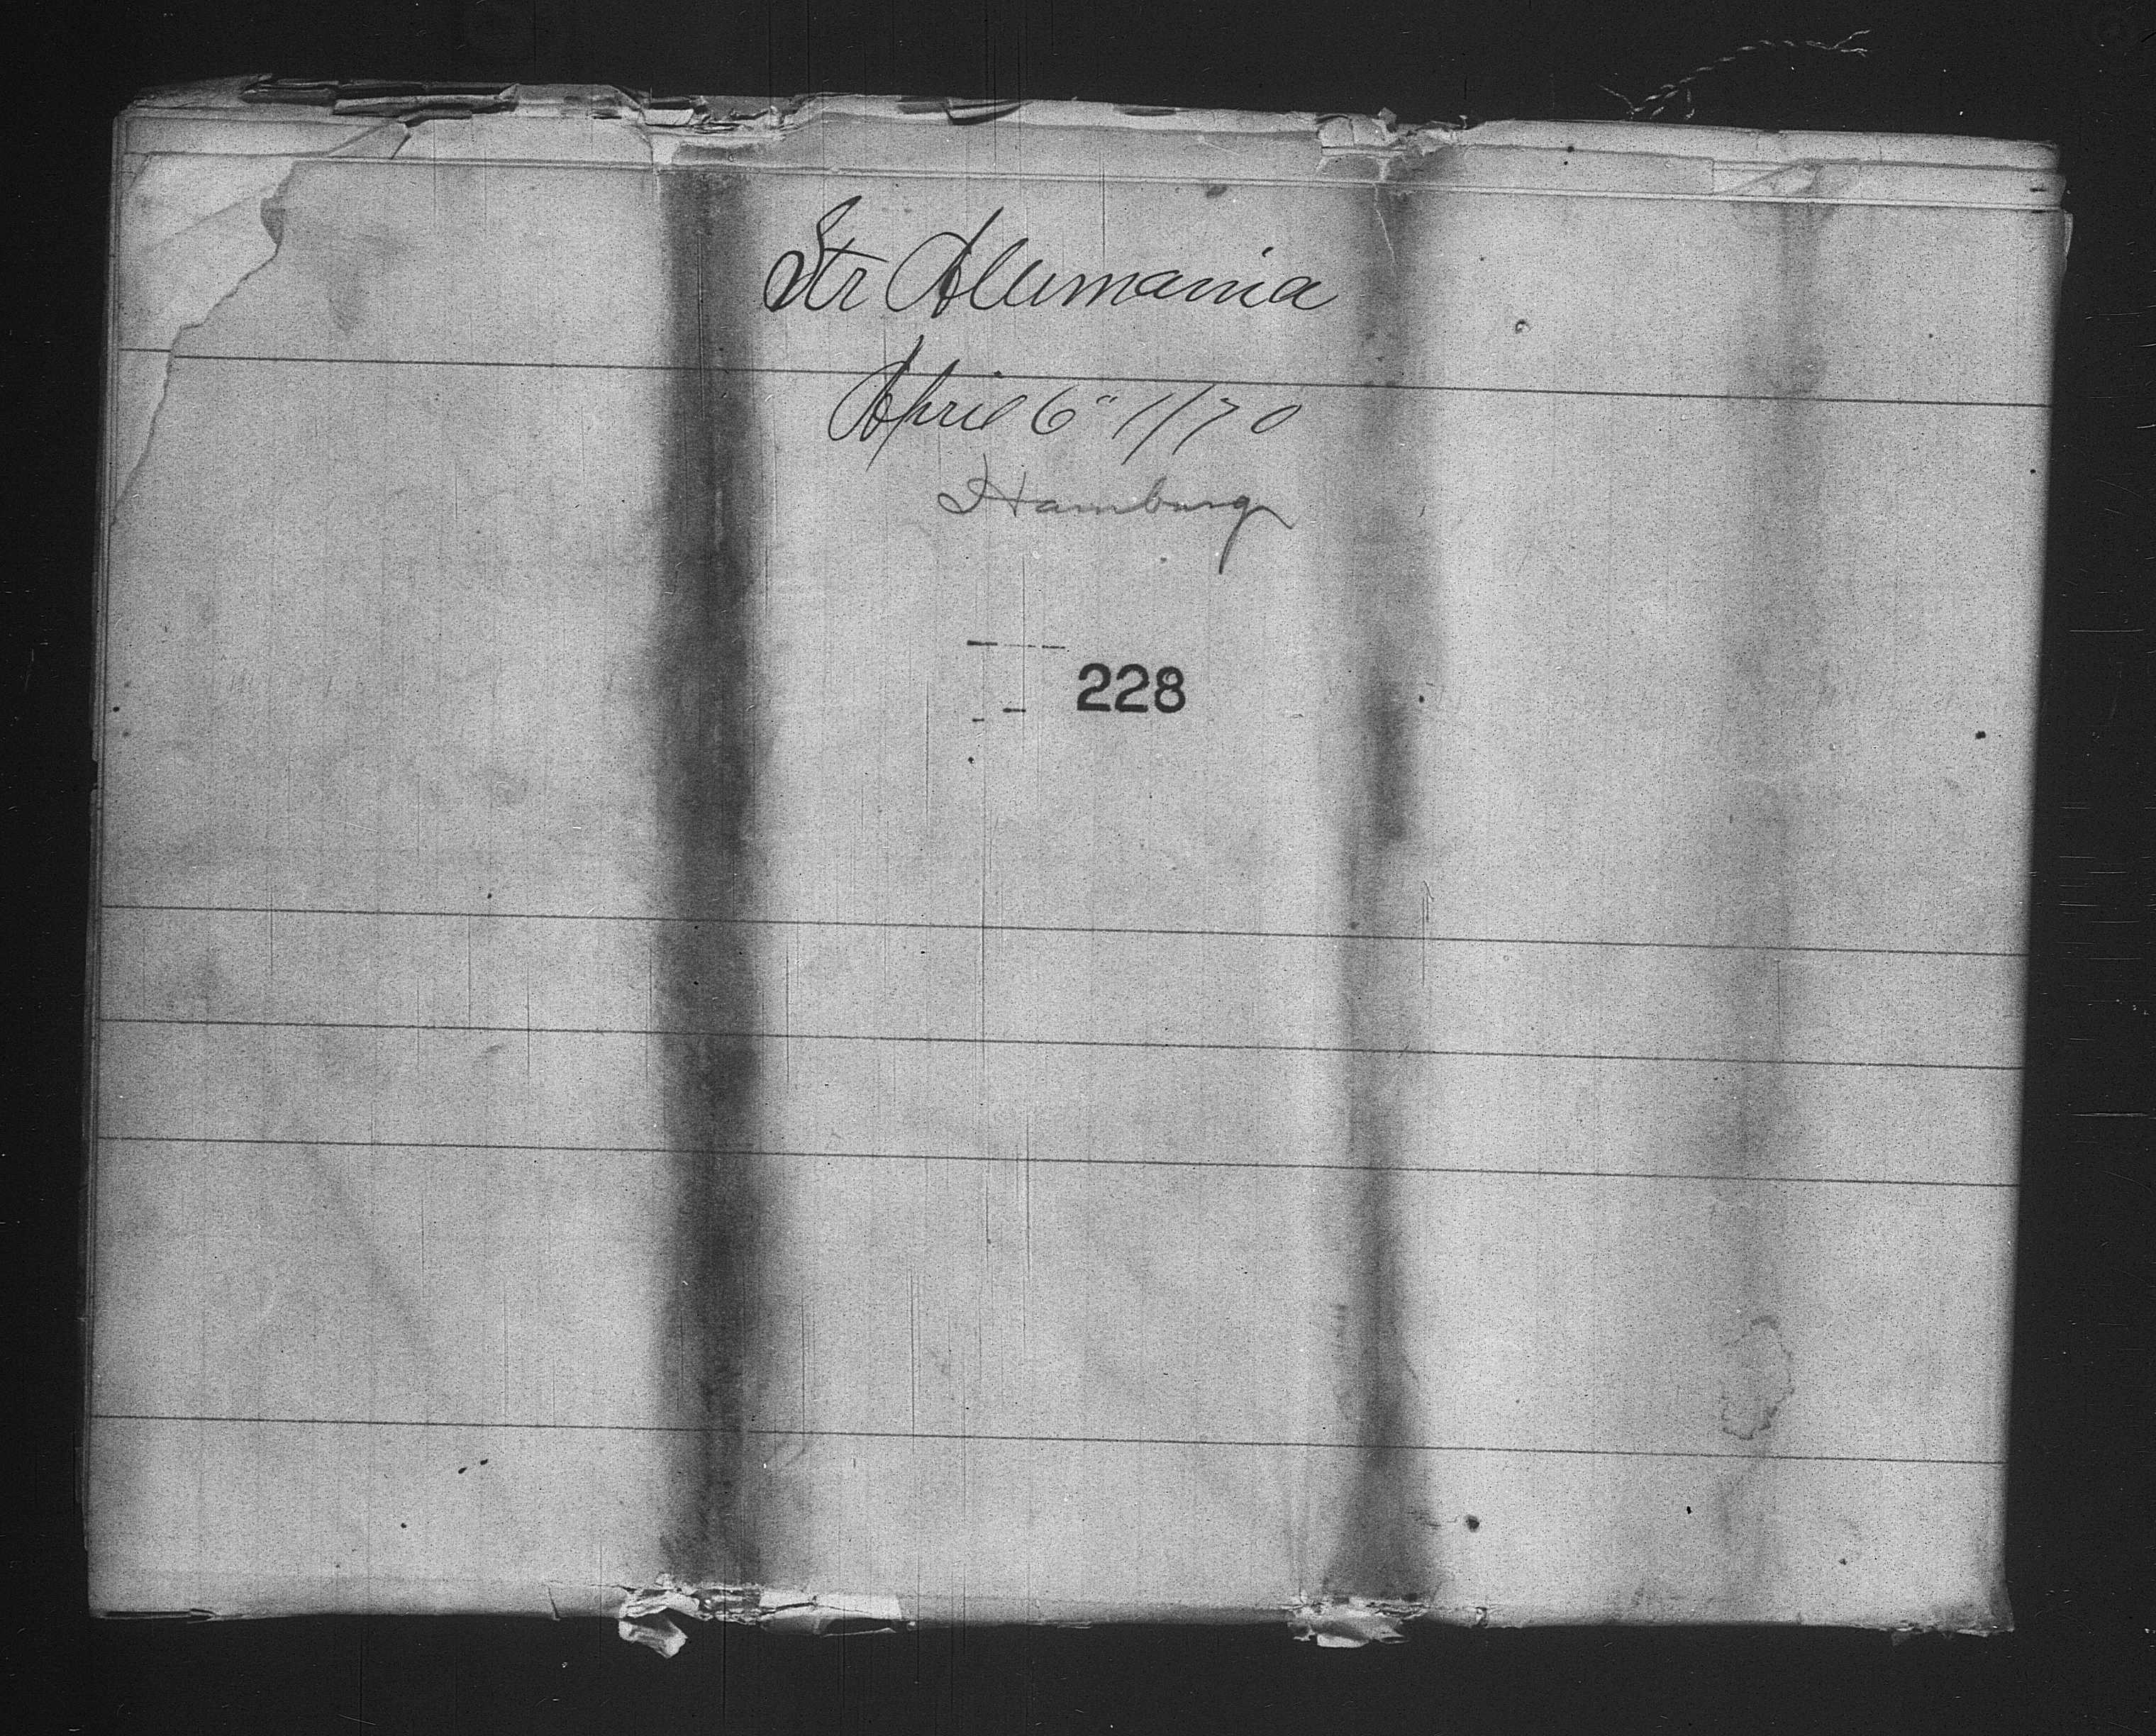 Str Allemania
April 6" 1870
Hamburg
228